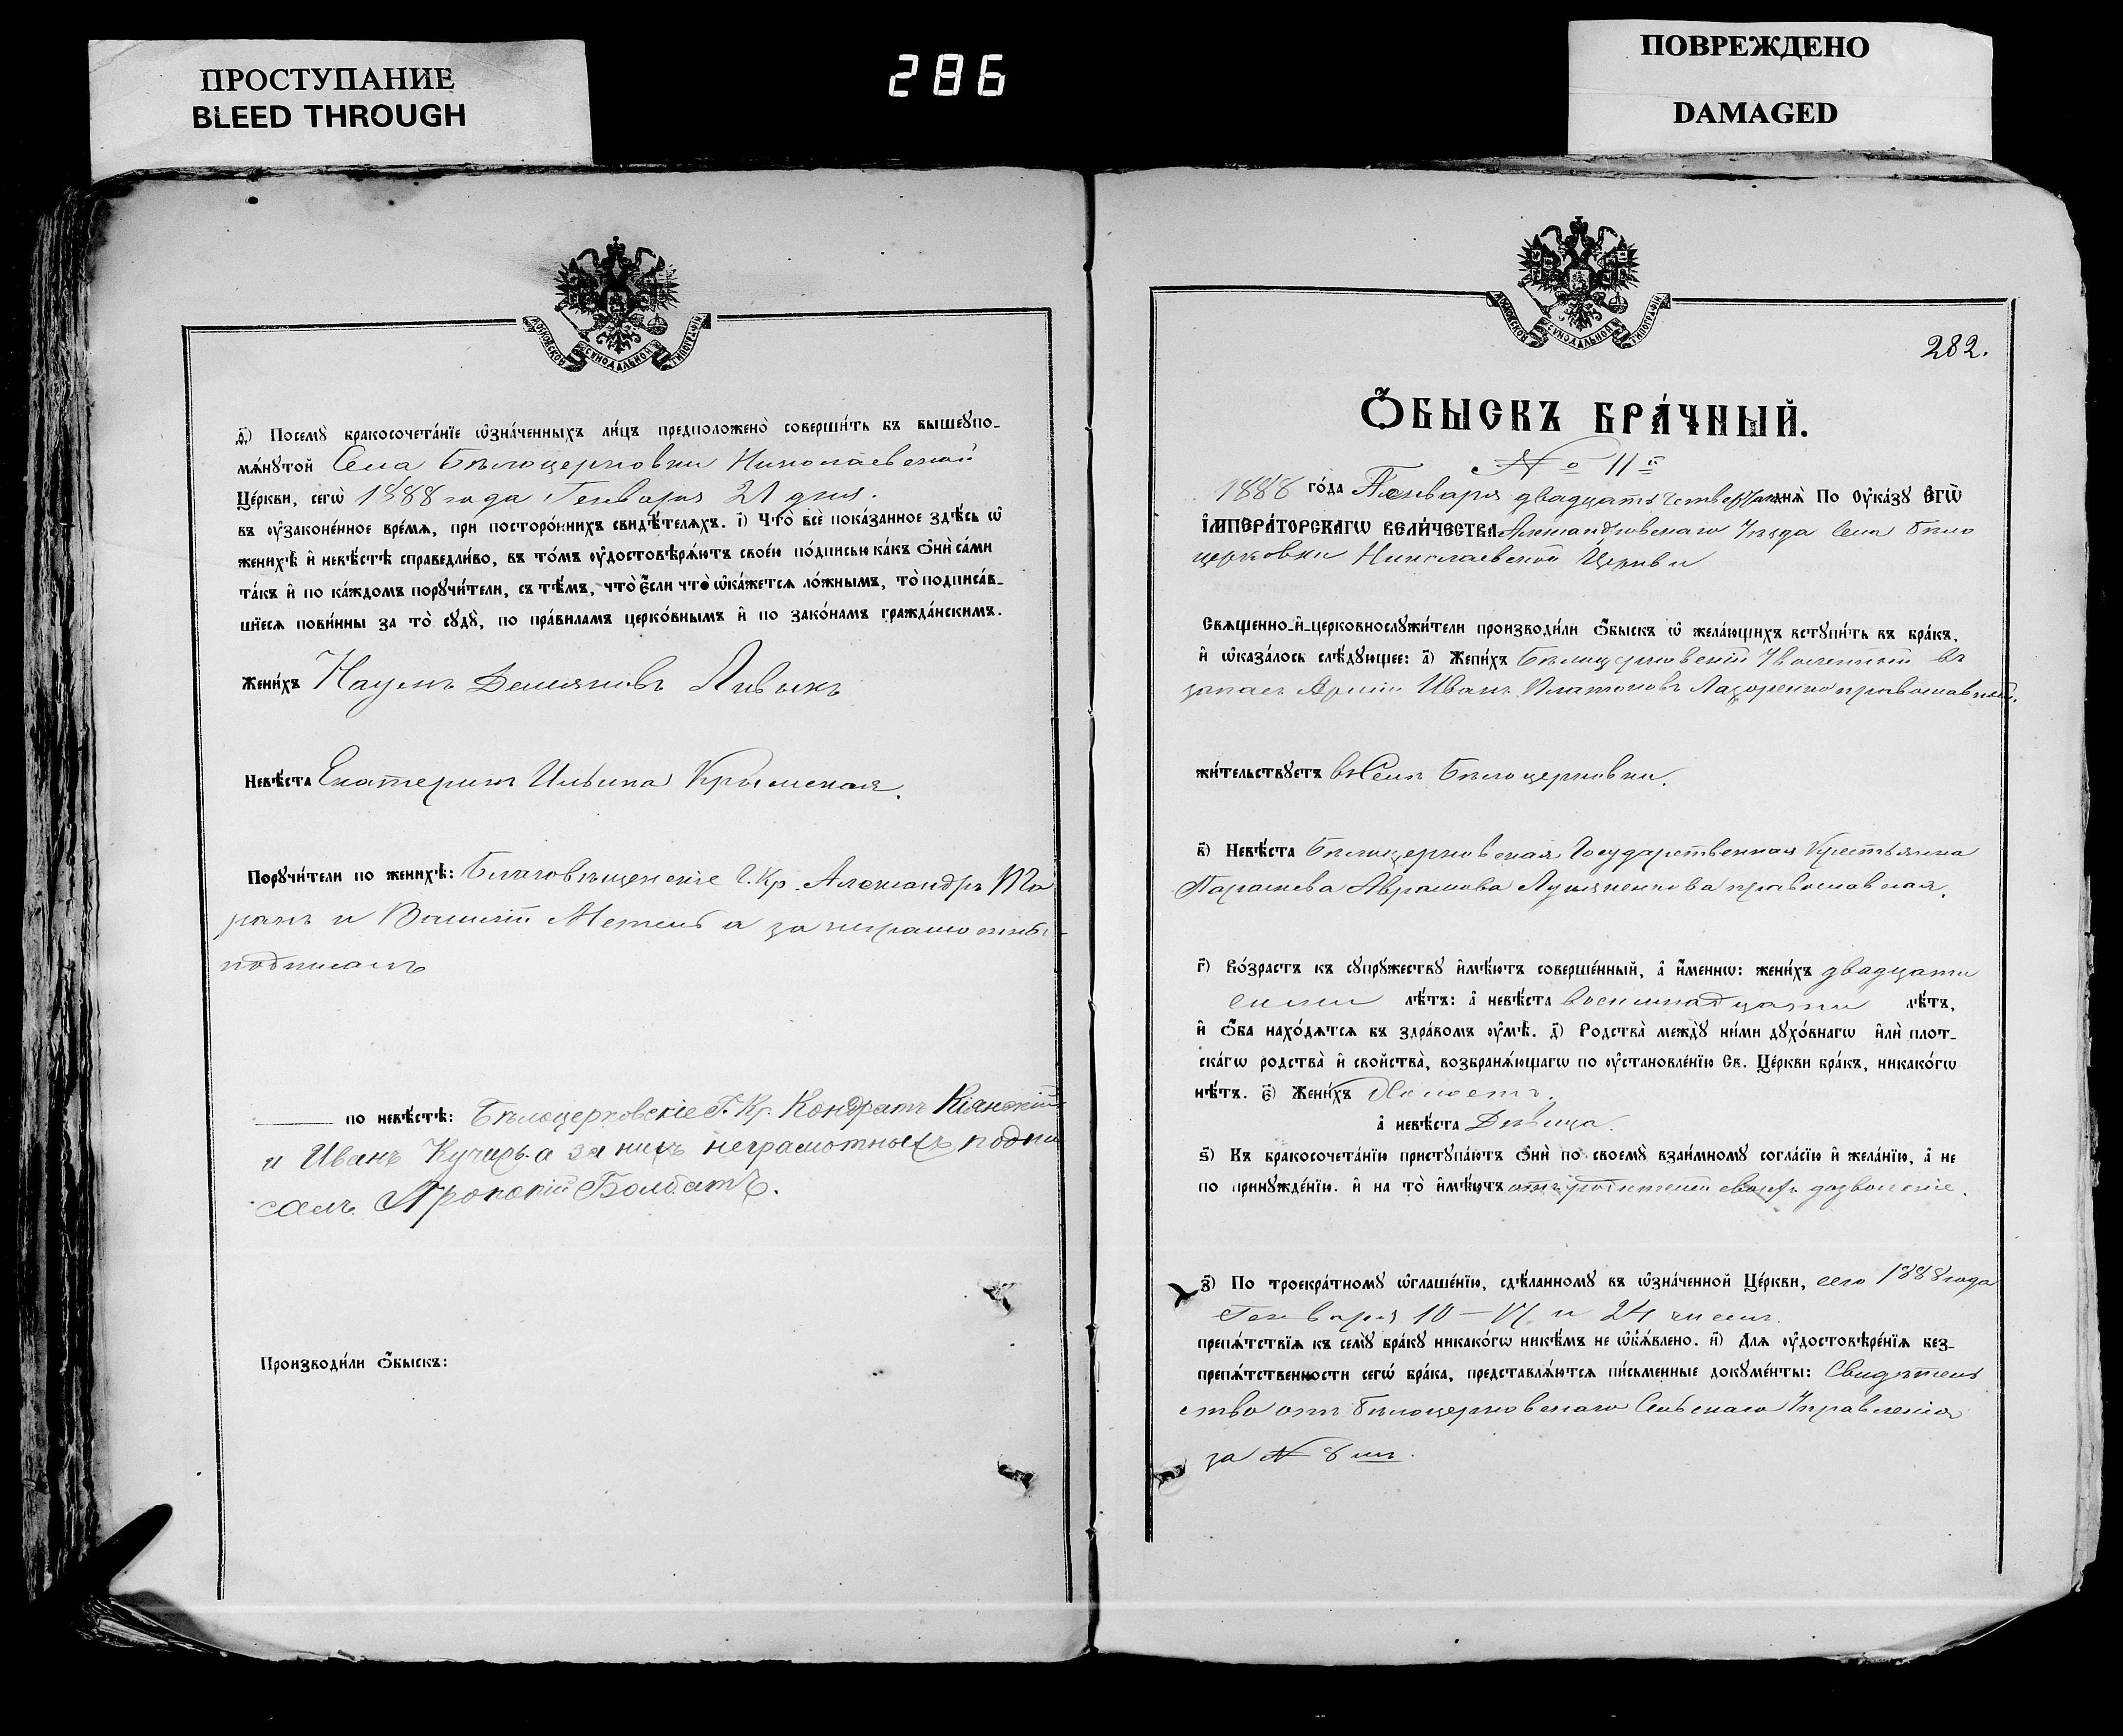 ПРОСТУПАНИЕ
BLEED THROUGH
286
ПОВРЕЖДЕНО
DAMAGED
МОСКОВСКОЙ СѴНОДАЛЬНОЙ ТИПОГРАФІИ
д҃) Посемꙋ̀ бракосочета́нїе ѡ҆зна́ченныхъ ли́цъ предположено̀ соверши́ть въ вышеꙋпо-
мѧ́нꙋтой Села Бѣлоцерковки Николаевской
Це́ркви, сегѡ̀ 1888 года Генваря 21 дня.
въ ᲂу҆зако́ненное вре́мѧ, при посторо́ннихъ свидѣ́телѧхъ. і҃) Что̀ всѐ пока́занное здѣ́сь ѡ҆
женихѣ̀ и҆ невѣ́стѣ справедли́во, въ то́мъ ᲂу҆достовѣрѧ́ютъ свое́ю по́дписью ка́къ ѻ҆нѝ са́ми
та́къ и҆ по ка́ждомъ порꙋчи́тели, съ тѣ́мъ, что̀ є҆́сли что̀ ѡ҆ка́жетсѧ ло́жнымъ, то̀ подписа́в-
шїесѧ пови́нны за то̀ сꙋдꙋ̀, по пра́виламъ церко́внымъ и҆ по зако́намъ гражда́нскимъ.
Жени́хъ Наумъ Демьяновъ Лывыкъ
Невѣ́ста Екатерина Ильина Крымская.
Порꙋчи́тели по женихѣ̀: Благовѣщенскіе Г. Кр. Александръ
и а за неграмотны
подписалъ
по невѣ́стѣ: Бѣлоцерковскіе Г. Кр. Кондратъ Кіянскій
и Иванъ Кучеръ а за нихъ неграмотныхъ подпи
салъ Прокопій Болбатъ.
Производи́ли ѻ҆́быскъ:
МОСКОВСКОЙ СѴНОДАЛЬНОЙ ТИПОГРАФІИ
282.
Ѻ҆́БЫСКЪ БРА́ЧНЫЙ.
№ 11й
1888 го́да Генваря двадцать четвертаго днѧ̀ По ᲂу҆ка́зꙋ Є҆гѡ̀
І҆мпера́торскагѡ вели́чества Александровскаго Уѣзда Села Бѣло
церковки Николаевской Церкви
Свѧще́нно-и҆-церковнослꙋжи́тели производи́ли ѻ҆́быскъ ѡ҆ жела́ющихъ встꙋпи́ть въ бра́къ,
и҆ ѡ҆каза́лось слѣ́дꙋющее: а҃) Жени́хъ Бѣлоцерковскій Уволенный въ
запасъ Арміи Иванъ Платоновъ Лазоренко православный.
жи́тельствꙋетъ въ Селѣ Бѣлоцерковки.
в҃) Невѣ́ста Бѣлоцерковская Государственная Крестьянка
Параскева Аврамова Лукяненкова православная.
г҃) Во́зрастъ къ сꙋпрꙋ́жествꙋ и҆мѣ́ютъ соверше́нный, а҆ и҆́меннѡ: жени́хъ двадцати
семи лѣ́тъ: а҆ невѣ́ста восемнадцати лѣ́тъ,
и҆ ѻ҆́ба нахо́дѧтсѧ въ здра́вомъ ᲂу҆мѣ̀. д҃) Родства̀ междꙋ̀ ни́ми дꙋхо́внагѡ и҆лѝ плот-
ска́гѡ родства̀ и҆ свойства̀, возбранѧ́ющагѡ по ᲂу҆становле́нїю Св. Це́ркви бра́къ, никако́гѡ
нѣ́тъ. є҃) Жени́хъ Холостъ.
а҆ невѣ́ста Дѣвица.
ѕ҃) Къ бракосочета́нїю пристꙋпа́ютъ ѻ҆нѝ по своемꙋ̀ взаи́мномꙋ согла́сїю и҆ жела́нїю, а҆ не
по принꙋжде́нїю. и҆ на то̀ и҆мѣ́ютъ отъ родителей своихъ дозволеніе.
з҃) По троекра́тномꙋ ѡ҆глаше́нїю, сдѣ́ланномꙋ въ ѡ҆зна́ченной Це́ркви, сего 1888 года
Генваря 10 - 17 и 24 чиселъ.
препѧ́тствїѧ къ семꙋ̀ бра́кꙋ никако́гѡ никѣ́мъ не ѡ҆б̾ѧ́влено. и҃) Длѧ ᲂу҆достовѣре́нїѧ без-
препѧ́тственности сегѡ̀ бра́ка, представлѧ́ютсѧ пи́сьменные докꙋме́нты: Свидѣтель
ство отъ Бѣлоцерковскаго Сельскаго Управленія
за № 8мъ.